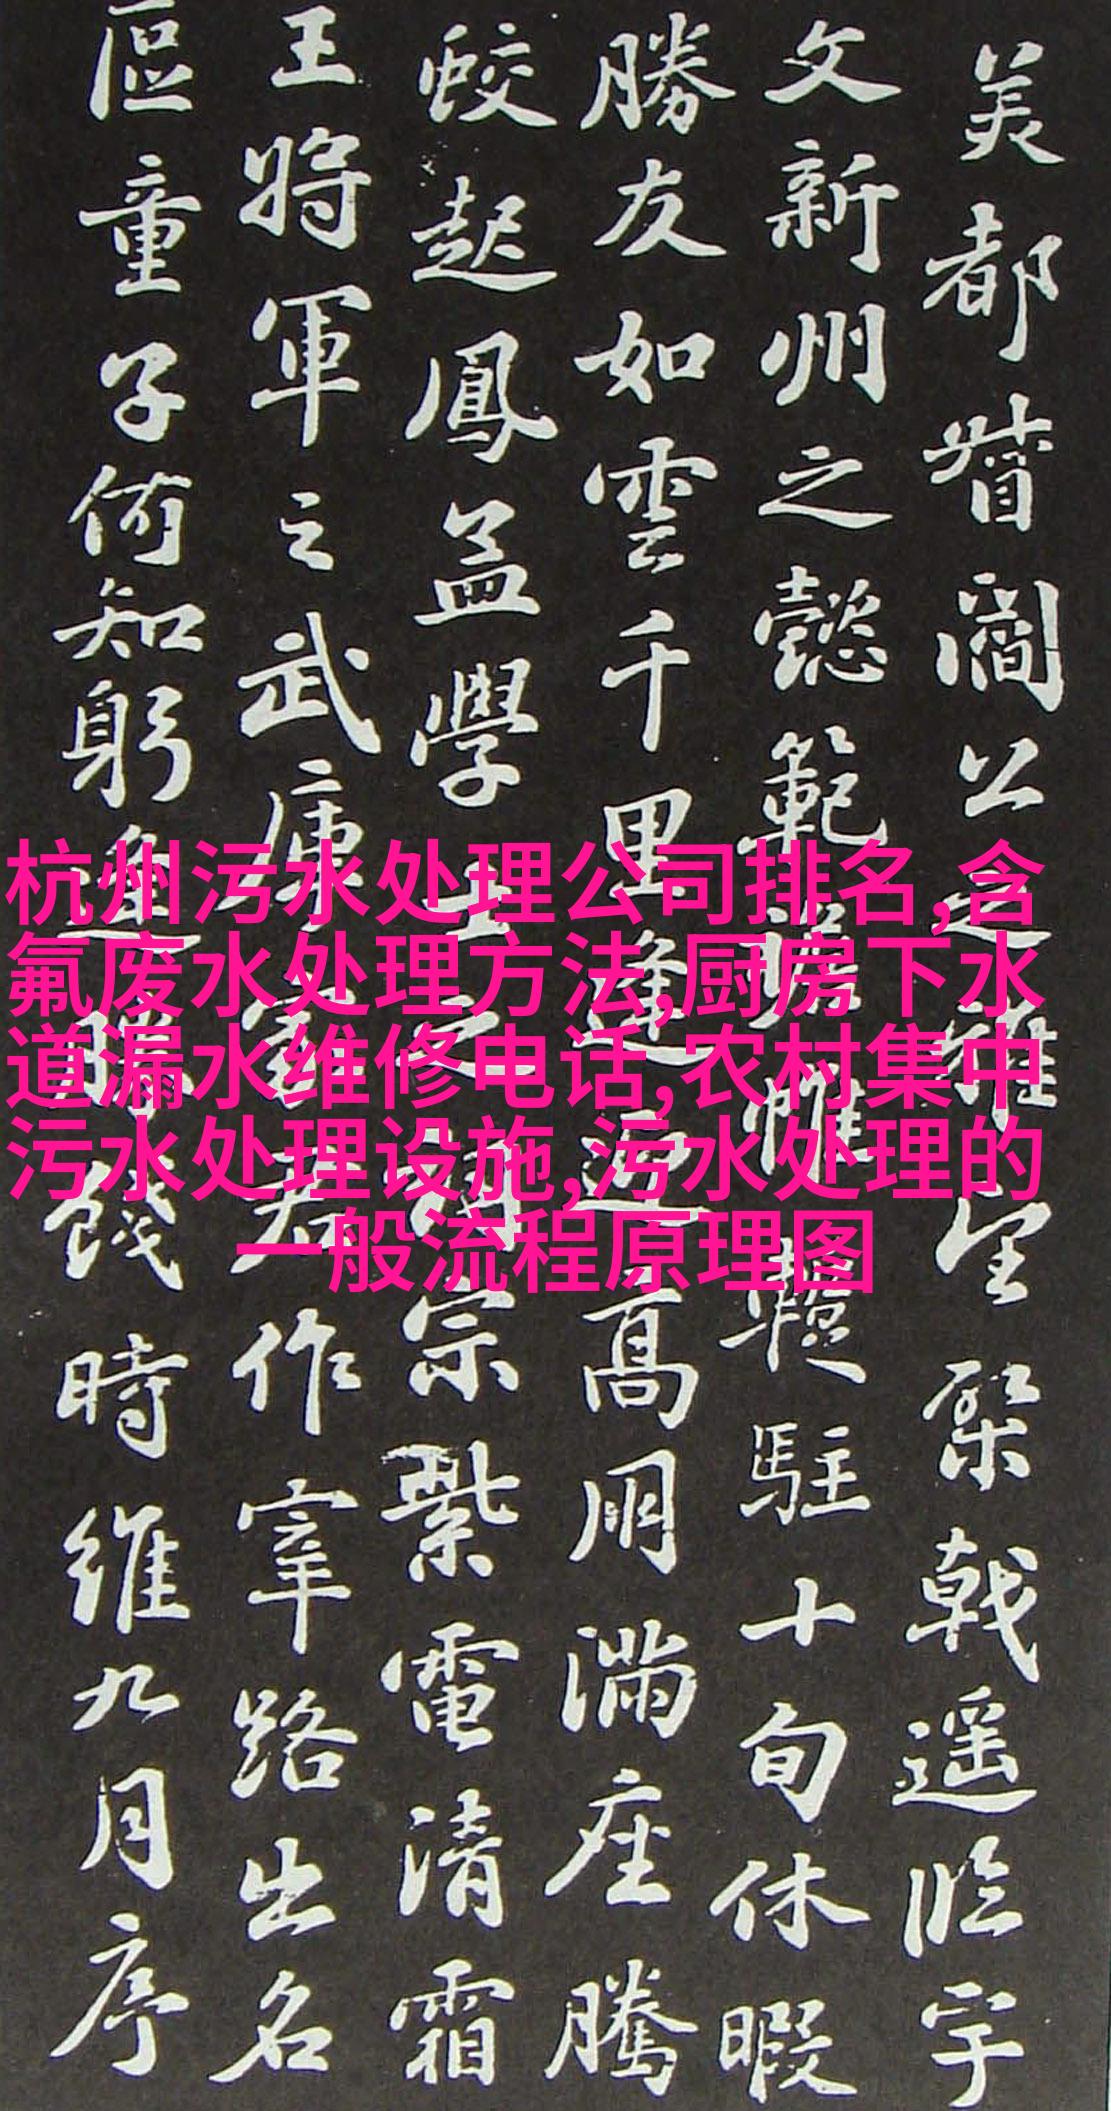 美都督閻公之雅望棨戟遥臨宇
文新州之懿範襜帷蹔駐十旬休暇
勝友如雲千里逢迎高朋滿座騰
蛟起鳳孟學士之詞宗紫電清霜
王將軍之武庫家君作宰路出名
區童子何知躬逢勝餞時維九月序
杭州污水处理公司排名,含
氟废水处理方法,厨房下水
道漏水维修电话,农村集中
污水处理设施,污水处理的
一般流程原理图